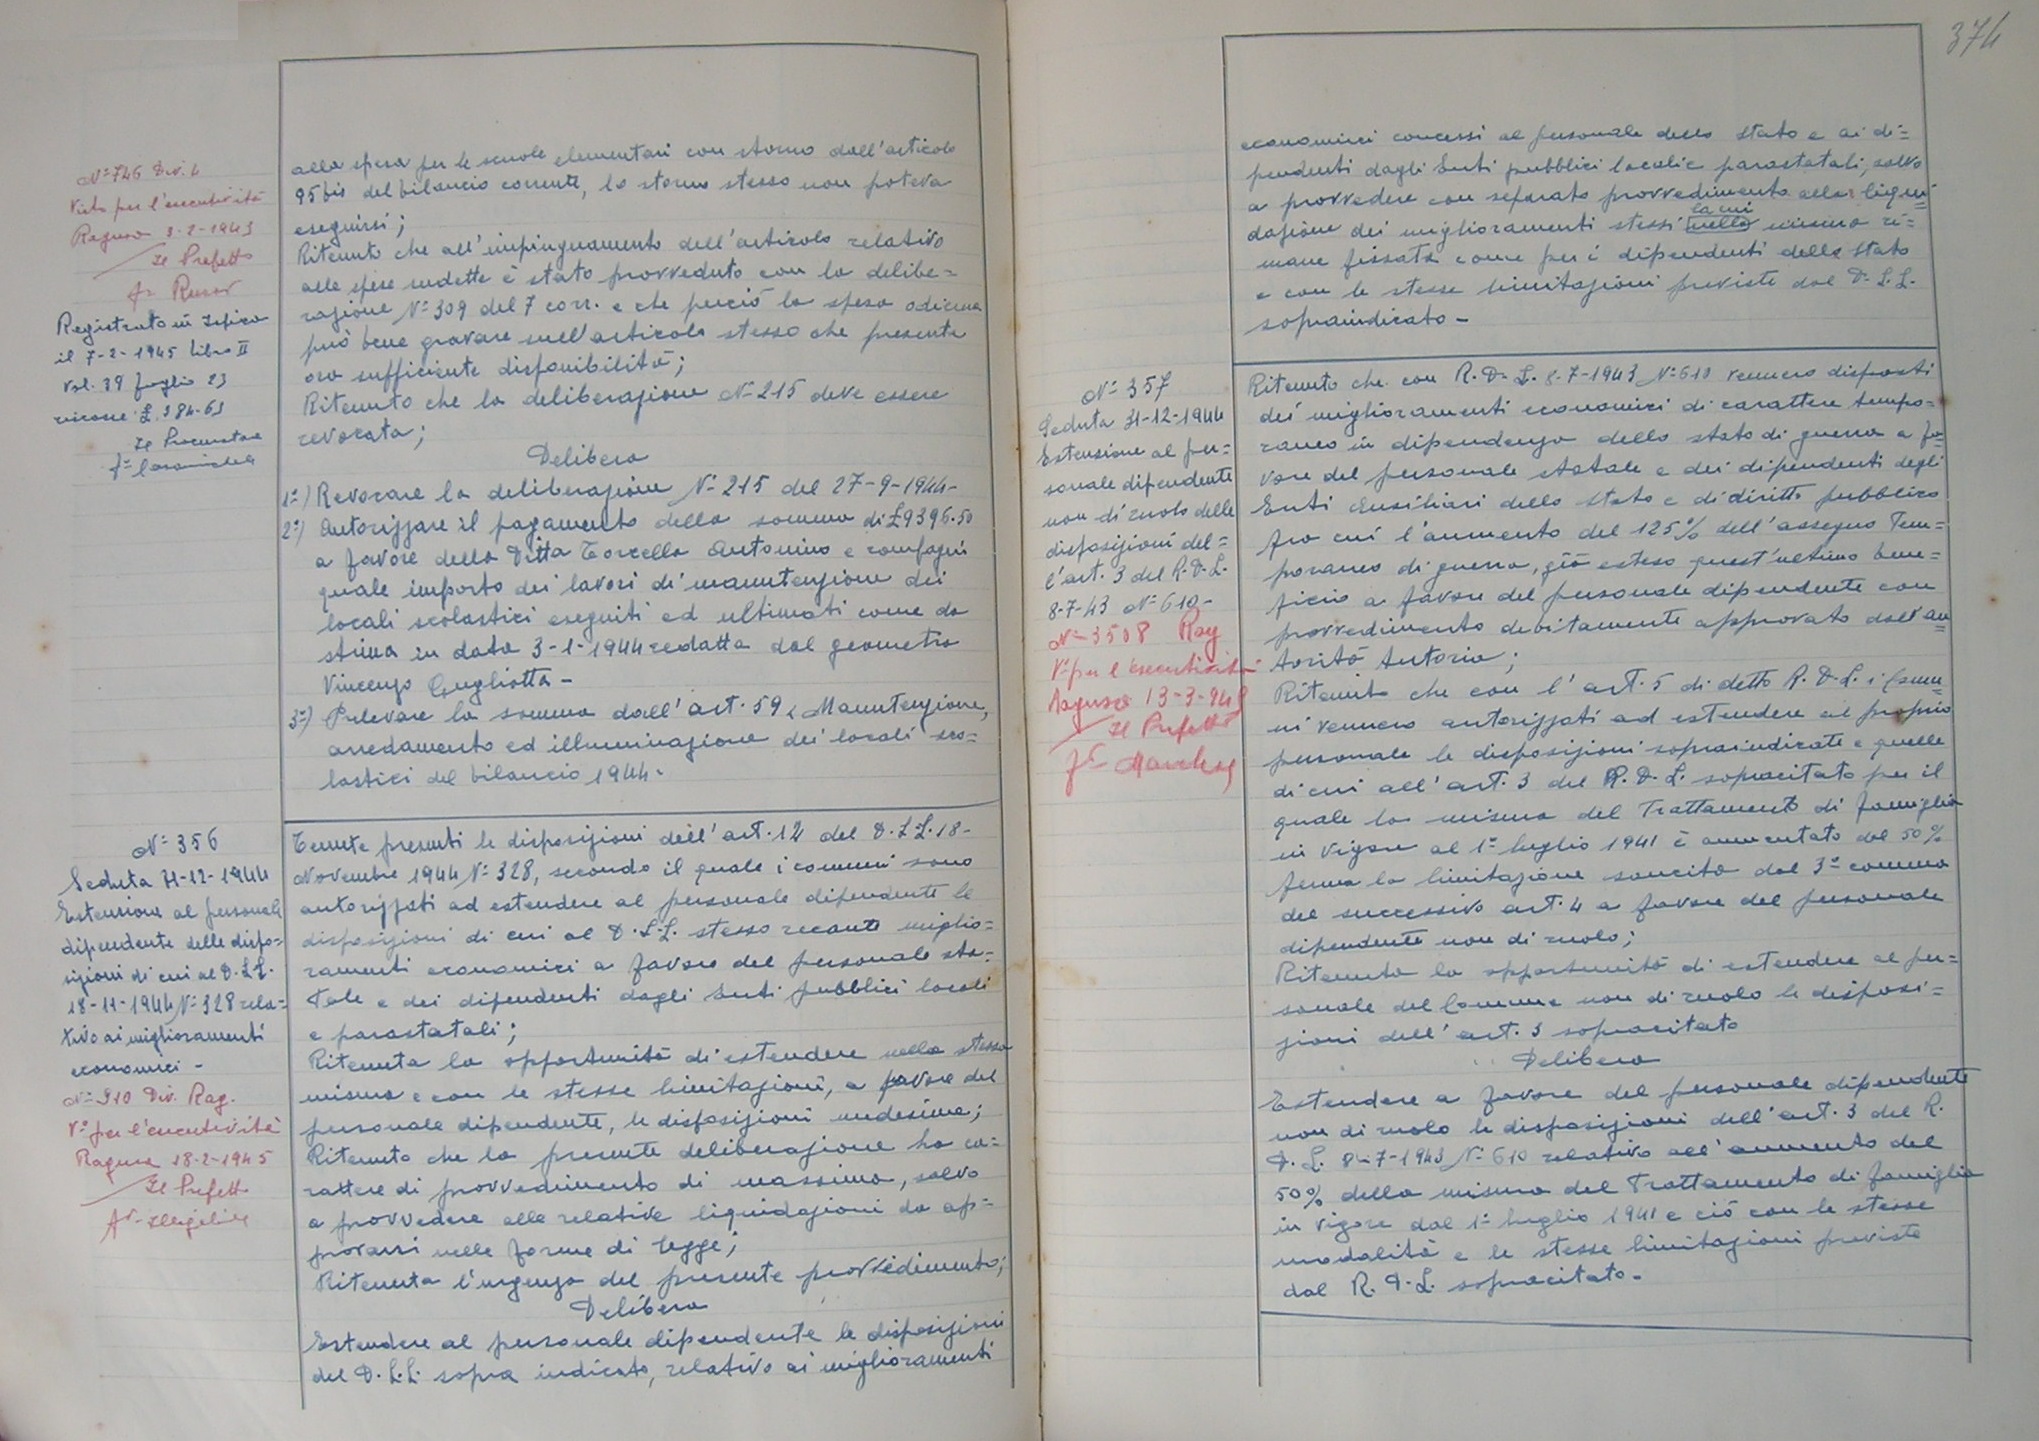 N° 746 Div. 4
Visto per l'esecutività
Ragusa 3-2-1945
Il Prefetto
Registrato in Ispica
il 7-2-1945 Libro II
Vol. 39 foglio 23
riscosse £.
Il Procuratore
alla spesa per le scuole elementari con storno dall'articolo
95 bis del bilancio corrente, lo storno stesso non poteva
eseguirsi;
Ritenuto che all'impinguamento dell'articolo relativo
alle spese sudette è stato provveduto con la delibe=
razione N° 309 del 7 corr. e che perciò la spesa odierna
può bene gravare sull'articolo stesso che presenta
ora sufficiente disponibilità;
Ritenuto che la deliberazione N° 215 deve essere
revocata;
Delibera
1°) Revocare la deliberazione N° 215 del 27-9-1944-
2°) Autorizzare il pagamento della somma di £9396.50
a favore della Ditta Torcello Antonino e compagni
quale importo dei lavori di manutenzione dei
locali scolastici eseguiti ed ultimati come da
stima in data 3-1-1944 redatta dal geometra
Vincenzo Gugliotta-
3°) Prelevare la somma dall'art. 59 "Manutenzione,
arredamento ed illuminazione dei locali sco=
lastici del bilancio 1944-
N° 356
Seduta 31-12-1944
Estensione al personale
dipendente delle dispo=
sizioni di cui al D.L.L.
18-11-1944 N° 328 rela=
tivo ai miglioramenti
economici -
N° 910 Div. Rag.
V° per l'esecutività
Ragusa 18-2-1945
Il Prefetto
Tenute presenti le disposizioni dell'art. 12 del D.L.L. 18-
Novembre 1944 N° 328, secondo il quale i comuni sono
autorizzati ad estendere al personale dipendente le
disposizioni di cui al D.L.L. stesso recante miglio=
ramenti economici a favore del personale sta=
tale e dei dipendenti dagli Enti pubblici locali
e parastatali;
Ritenuta la opportunità di estendere nella stessa
misura e con le stesse limitazioni, a favore del
personale dipendente, le disposizioni medesime;
Ritenuto che la presente deliberazione ha ca=
rattere di provvedimento di massima, salvo
a provvedere alle relative liquidazioni da ap=
provarsi nelle forme di legge;
Ritenuta l'urgenza del presente provvedimento;
Delibera
Estendere al personale dipendente le disposizioni
del D.L.L. sopra indicato, relativo ai miglioramenti
374
economici concessi al personale dello stato e ai di=
pendenti dagli Enti pubblici locali e parastatali, salvo
a provvedere con separato provvedimento alla liqui=
la cui
dazione dei miglioramenti stessi nella misura ri=
mane fissata come per i dipendenti dello Stato
e con le stesse limitazioni previste dal D.L.L.
sopraindicato-
N° 357
Seduta 31-12-1944
Estensione al per=
sonale dipendente
non di ruolo delle
disposizioni del=
l'art. 3 del R.D.L.
8-7-43 N° 610-
N° 3508 Rag
V° per l'esecutività
Ragusa 13-3-945
Il Prefetto
Ritenuto che con R.D.L. 8-7-1943 N° 610 vennero disposti
dei miglioramenti economici di carattere tempo=
raneo in dipendenza dello stato di guerra a fa=
vore del personale statale e dei dipendenti degli
Enti Ausiliari dello Stato e di diritto pubblico
fra cui l'aumento del 125% dell'assegno Tem=
poraneo di guerra, già esteso quest'ultimo bene=
ficio a favore del personale dipendente con
provvedimento debitamente approvato dall'au=
torità tutoria;
Ritenuto che con l'art. 5 di detto R.D.L. i Comu=
ni vennero autorizzati ad estendere al proprio
personale le disposizioni sopraindicate e quelle
di cui all'art. 3 del R.D.L. sopracitato per il
quale la misura del Trattamento di famiglia
in vigore al 1° luglio 1941 è aumentato del 50%
ferma la limitazione sancita dal 3° comma
del successivo art. 4 a favore del personale
dipendente non di ruolo;
Ritenuta la opportunità di estendere al per=
sonale del Comune non di ruolo le disposi=
zioni dell'art. 3 sopracitato
Delibera
Estendere a favore del personale dipendente
non di ruolo le disposizioni dell'art. 3 del R.
D.L. 8-7-1943 N° 610 relativo all'aumento del
50% della misura del Trattamento di famiglia
in vigore dal 1° luglio 1941 e ciò con le stesse
modalità e le stesse limitazioni previste
dal R.D.L. sopracitato-